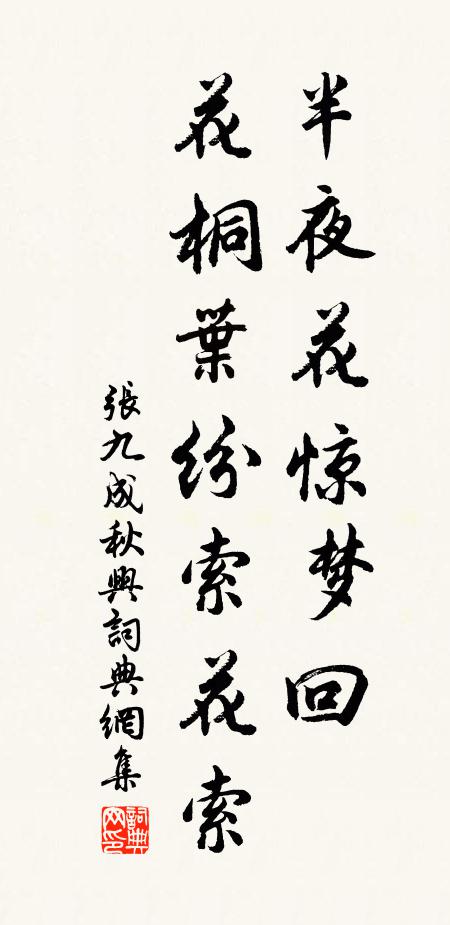 半夜花惊梦回
花桐葉纷索花索
張九成秋興詞典網集
詞典網印